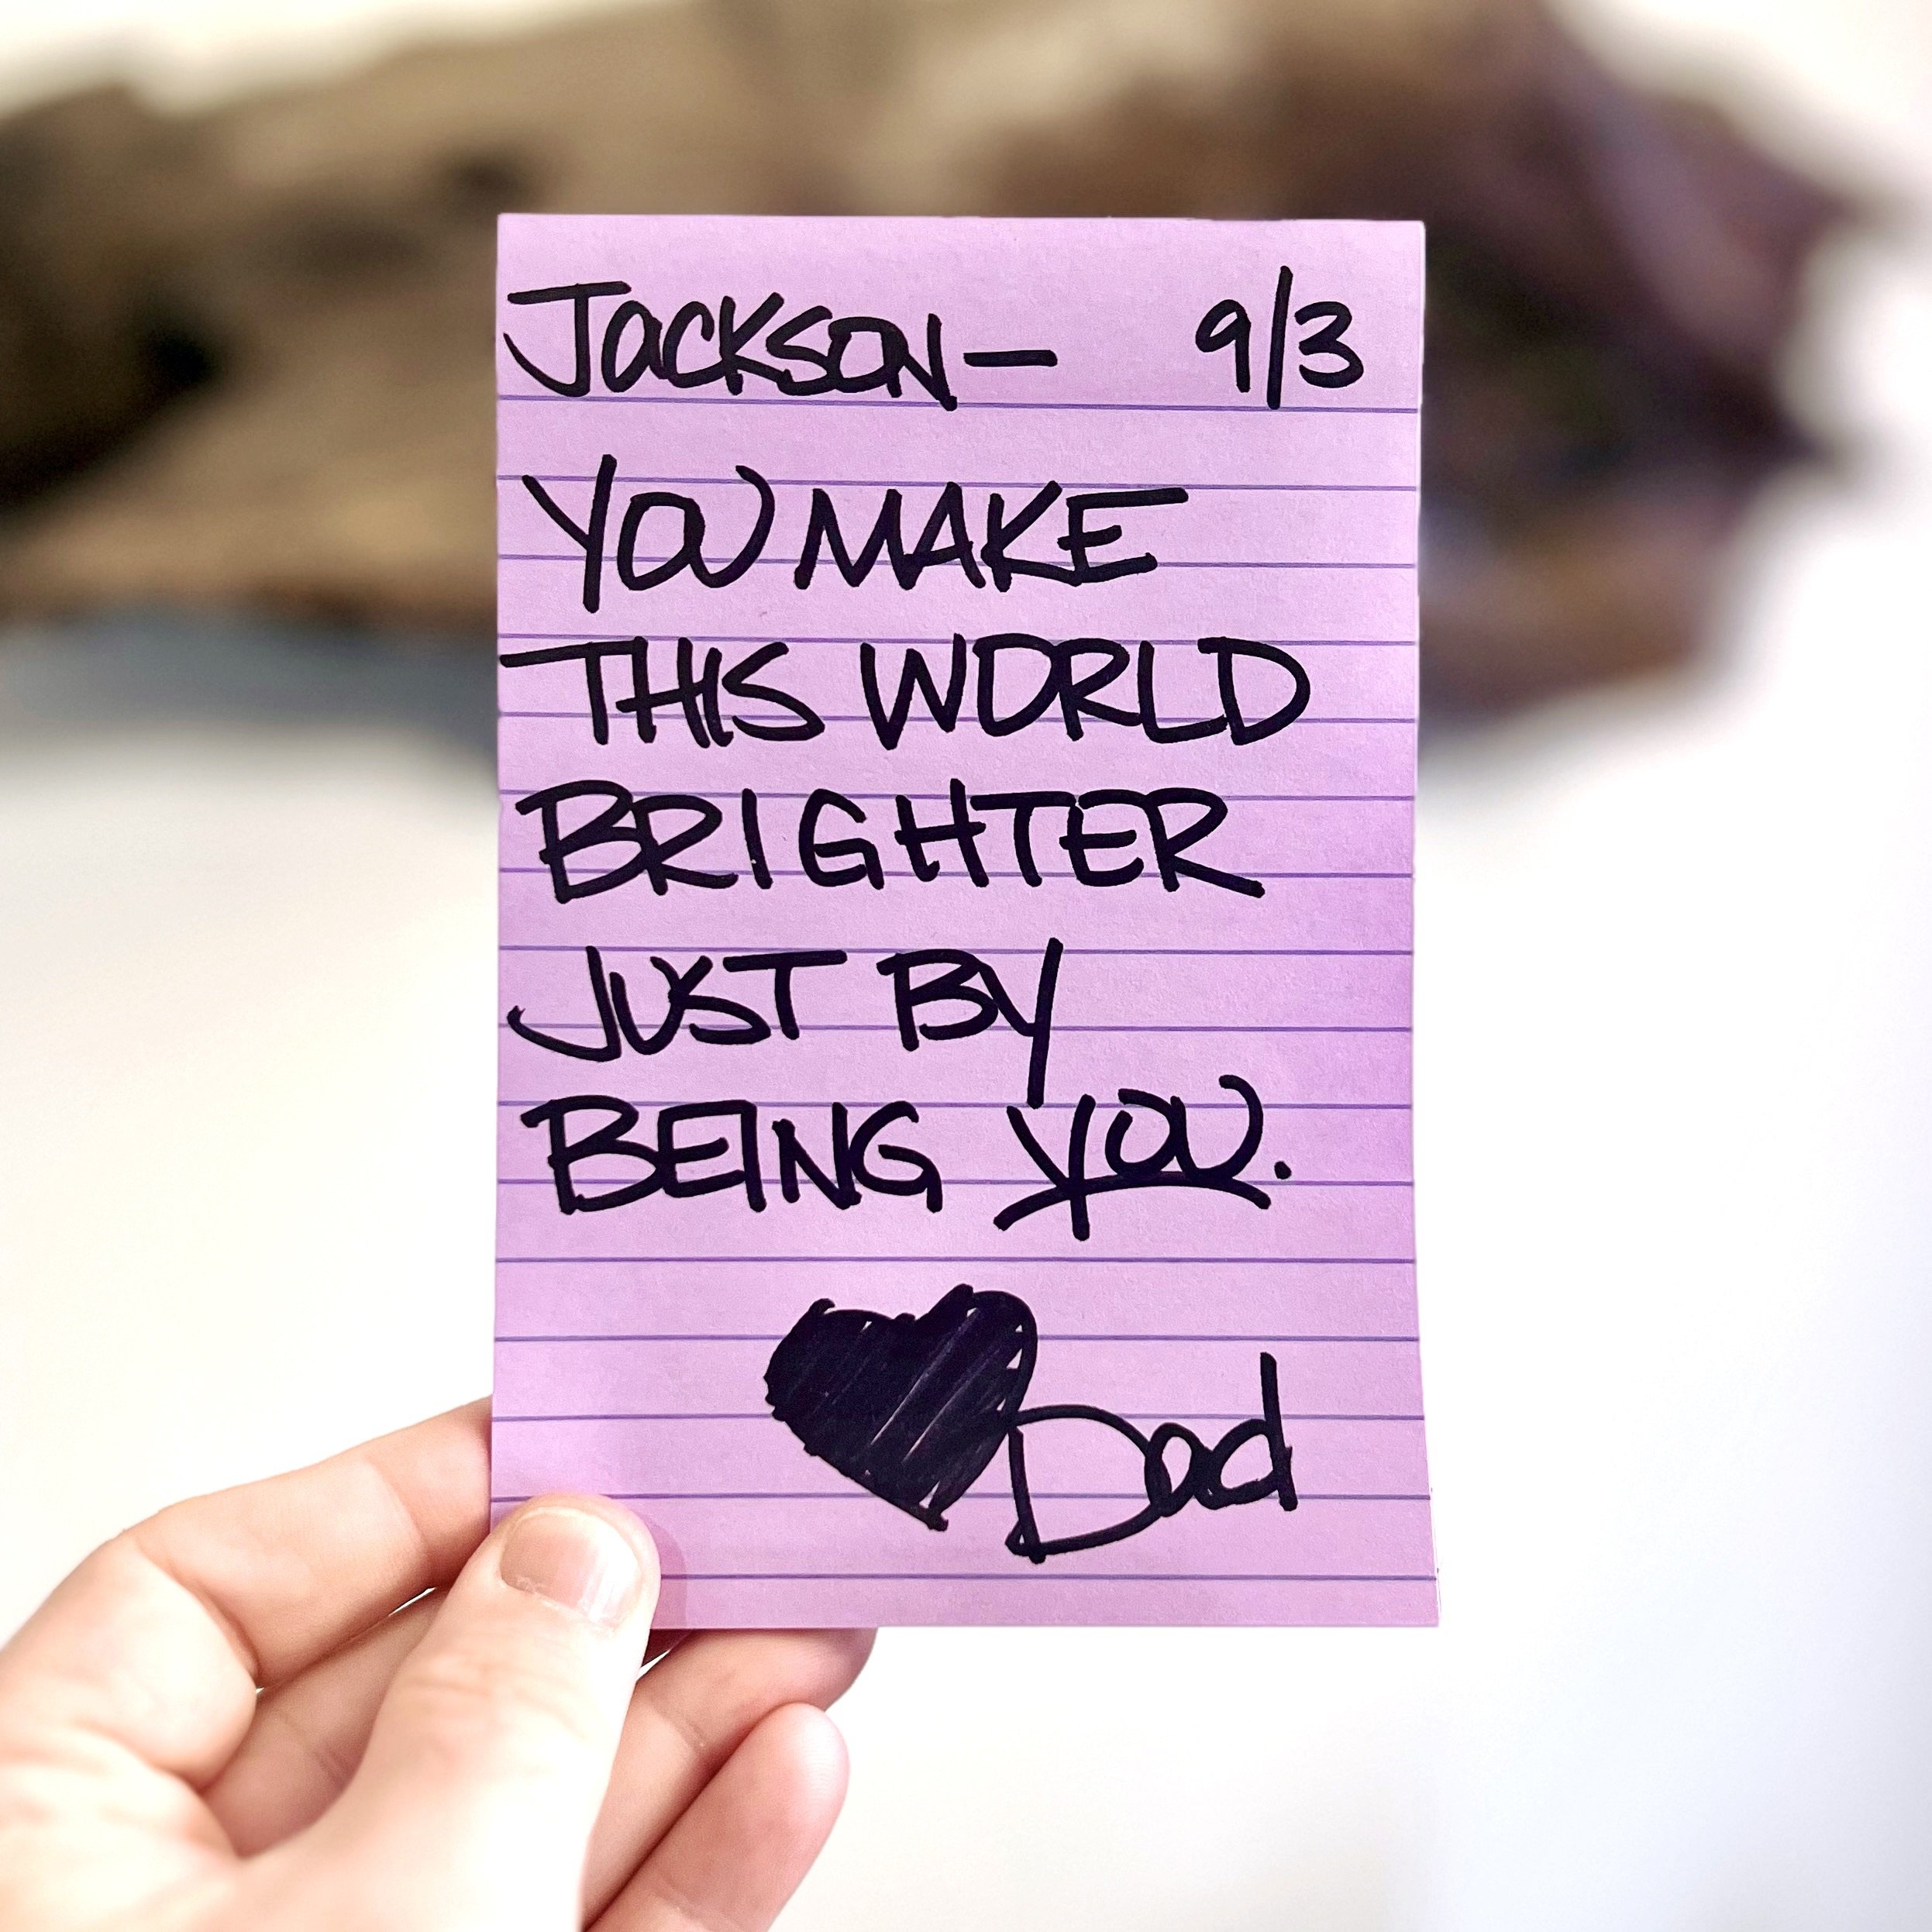 Jackson— 9/3
YOU MAKE
THIS WORLD
BRIGHTER
JUST BY
BEING YOU.
Dad